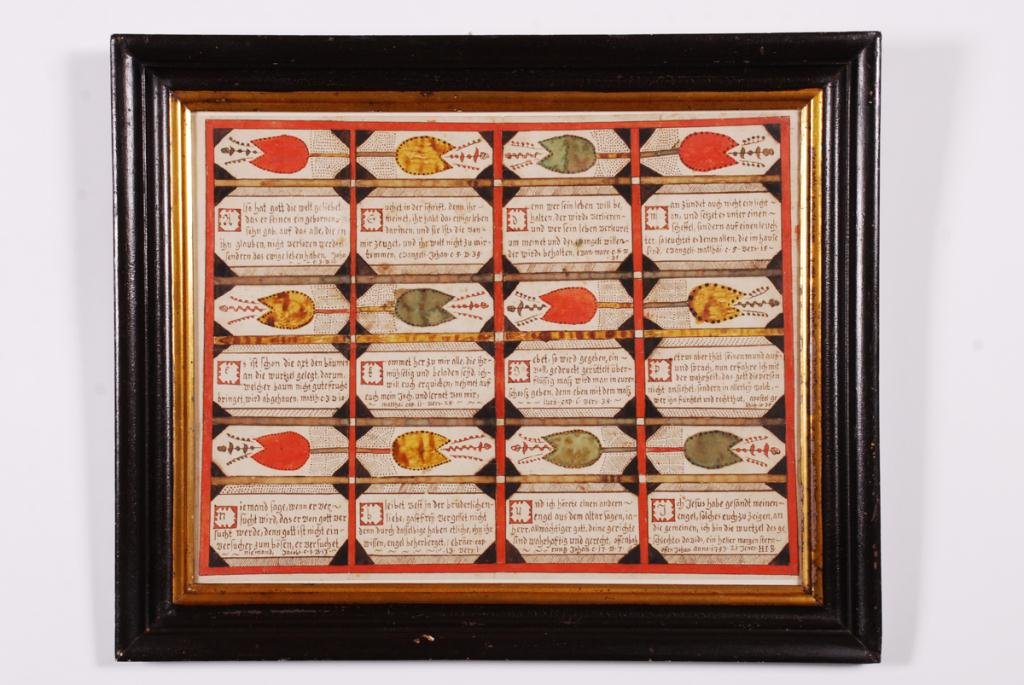 Also hat gott die welt geliebet
das er seinen ein gebornen
sohn gab. auf das alle, die in
ihn glauben, nicht verloren werde
sondern das ewige leben haben, Joha
c 3 V 16
Suchet in der schrift, denn, ihr
meinet, ihr habt das ewige leben
darinen, und sie ists die von
mir zeuget, und ihr wolt nicht zu mir
kommen, evangeli Johan c 5 V 39
Denn wer sein leben will be
halten, der wirds verlieren
und wer sein leben verleuret
um meinet und des evangeli willen
der wirds behalten, evan marc c 8 V
35
man zündet auch nicht ein licht
an, und setzet es unter einen
scheffel, sondern auf einen leuch
ter, so leuchtet es denen allen, die im hause
sind, evangeli matthäi c 5 vers 15
Es ist schon die axt den bäumen
an die wurtzel gelegt, darum,
welcher baum nicht gute frucht
bringet, wird abgehauen, matth c 3 V 10
Commet her zu mir alle, die ihr
mühselig und beladen seyd, ich
will euch erquicken, nehmet auf
euch mein Joch, und lernet von mir,
matthäi cap 11 vers 28
Gebet, so wird gegeben, ein
voll, gedruckt gerüttelt über
flüssig mass, wird man in euren
schoos geben, denn eben mit dem mass
lucä cap 6 vers 38
Petrus aber thät seinen mund auf
und sprach, nun erfahre ich mit
der wahrheit, das gott die person
nicht ansiehet, sondern in allerley volck,
wer ihn fürchtet und recht thut, apostel ge
niemand sage, wenn er ver
sucht wird, das er von gott ver
sucht werde, denn gott ist nicht ein
versucher zum bösen, er versuchet
niemand, Jacob c 1 V 13
bleibet vest in der brüderlichen
liebe, gastfrey vergesst nicht
denn durch dasselbige haben etliche, ohn ihr
wissen, engel beherberget, ebräer cap
13 vers 1
Und ich hörete einen andern
engel aus dem altar sagen, ja
herr, allmächtiger gott, deine gerichte
sind warhaftig und gerecht, offenbah
rung Johan c 17 V 7
Ich Jesus habe gesandt meinen
engel, solches euch zu zeigen, an
die gemeinen, ich bin die wurtzel des ge
schlechtes davids, ein heller morgenstern
offen Johan anno 1787 21 Jener HIS